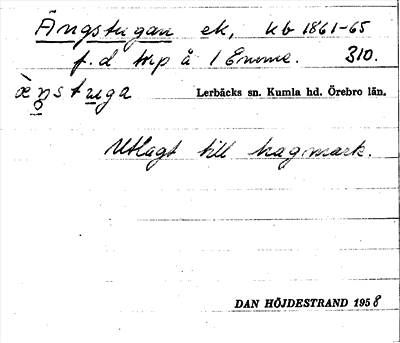 Ängstugan ek, kb 1861-65
f.d. trp å 1 Enome. 310.
ænstuga Lerbäcks sn. Kumla hd. Örebro län.
Utlagt till hagmark.
DAN HÖJDESTRAND 1958